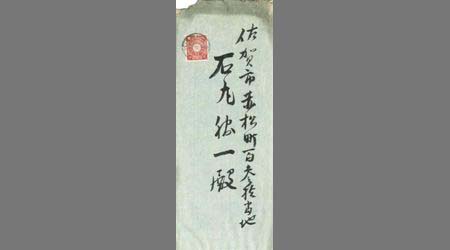 佐賀市赤松町百参拾番地
石丸勝一殿